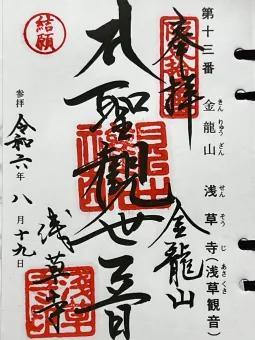 第十三番 金龍山 浅草寺(浅草観音)
きん りゅう ざん せん そう じ あさ くさ
奉拝
金龍山
聖觀世音
浅草寺
結願
参拝 令和六年八月十九日